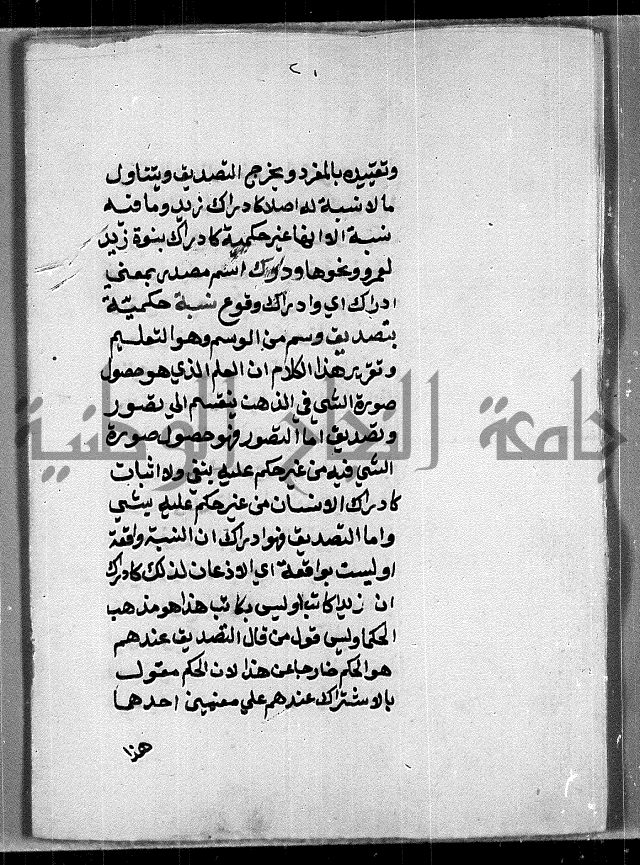 ٢١
وتقييده بالمفرد ويخرج التصديق ويتناول
مالا نسبة له اصلا كادراك زيد وما فيه
نسبة الا انها غير حكمية كادراك بنوة زيد
لعمرو ونحوها ودرك اسم مصدر بمعني
ادراك اي وادراك وقوع نسبة حكمية
بتصديق وسم من الوسم وهو التعليم
وتقرير هذا الكلام ان العلم الذي هو حصول
صورة الشي في الذهن ينقسم الي تصور
وتصديق اما التصور فهو حصول صورة
الشي فيه من غير حكم عليه بنفي ولا اثبات
كادراك الانسان من غير حكم عليه بشي
واما التصديق فهو ادراك ان النسبة واقعة
او ليست بواقعة اي الاذعان لذلك كادراك
ان زيدا كاتب او ليس بكاتب هذا هو مذهب
الحكما وليس قول من قال التصديق عندهم
هو الحكم خارجا عن هذا لان الحكم مقول
بالاشتراك عندهم علي معنيين احدها
هذا
جامعة النجاح الوطنية